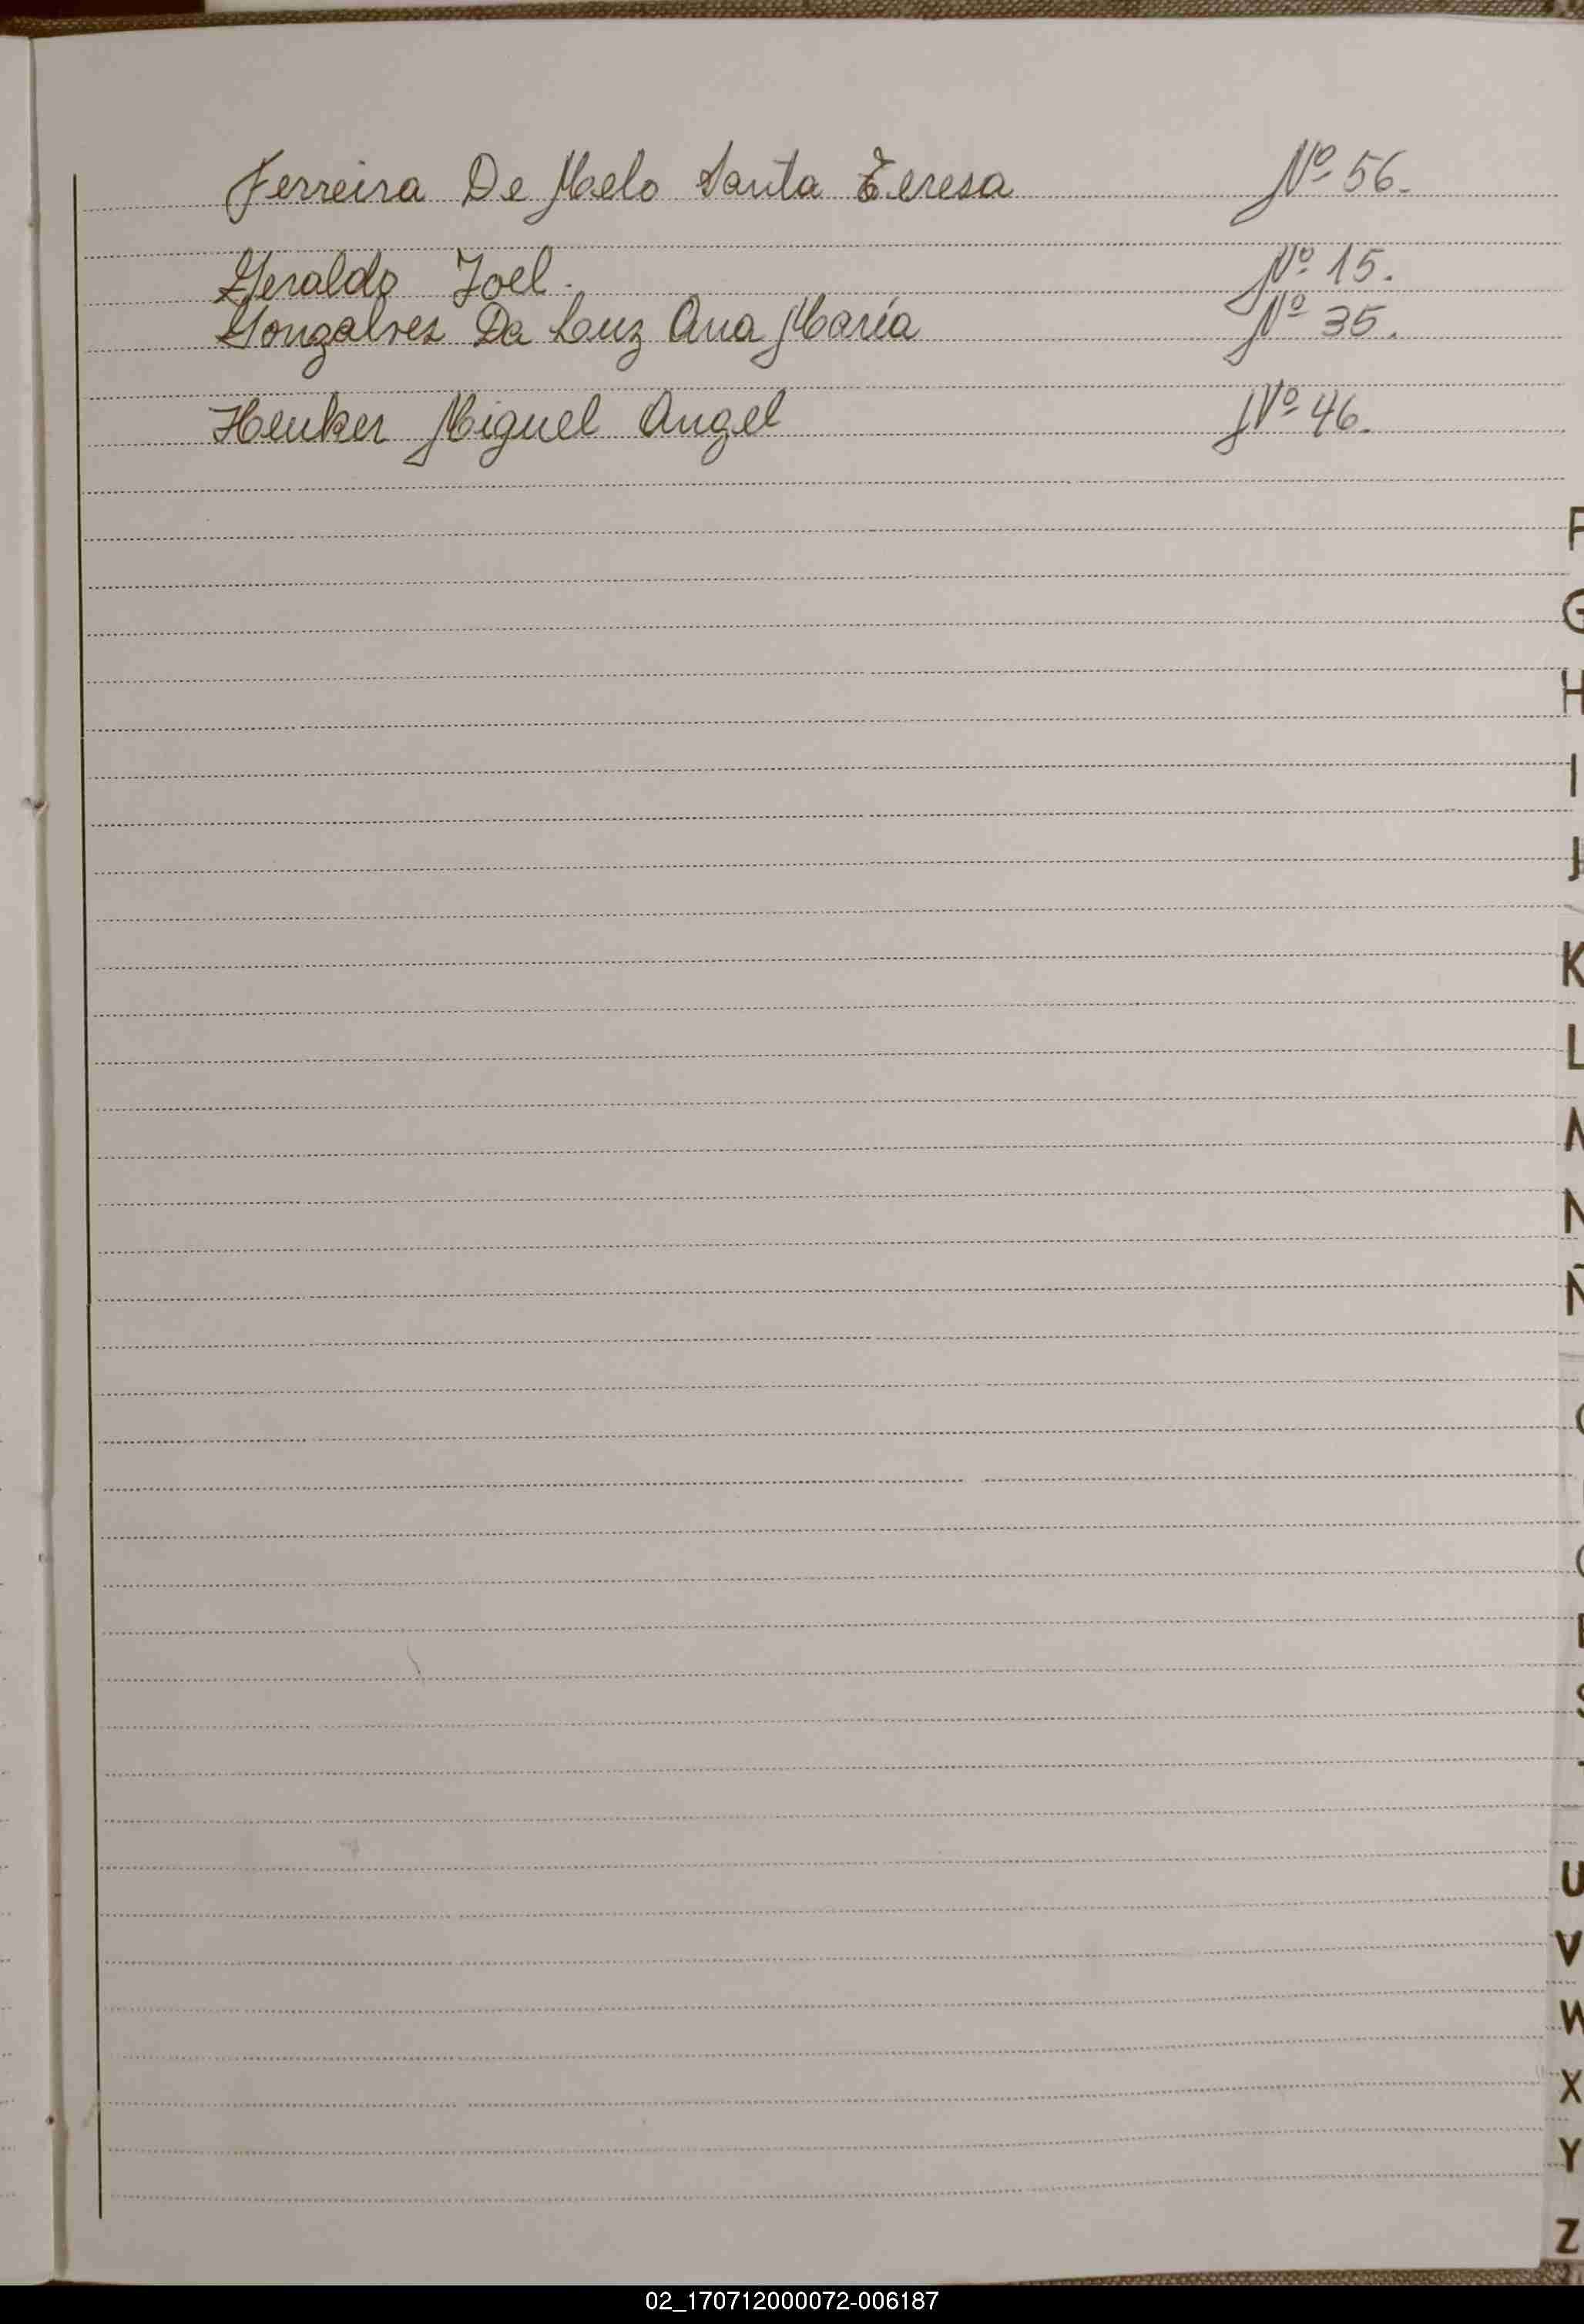 Ferreira De Melo Santa Teresa Nº 56.
Geraldo Joel. Nº 15.
Gonzalves Da Luz Ana María Nº 35.
Henker Miguel Angel Nº 46.
F
G
H
I
J
K
L
M
N
Ñ
S
U
V
W
X
Y
Z
02_170712000072-006187